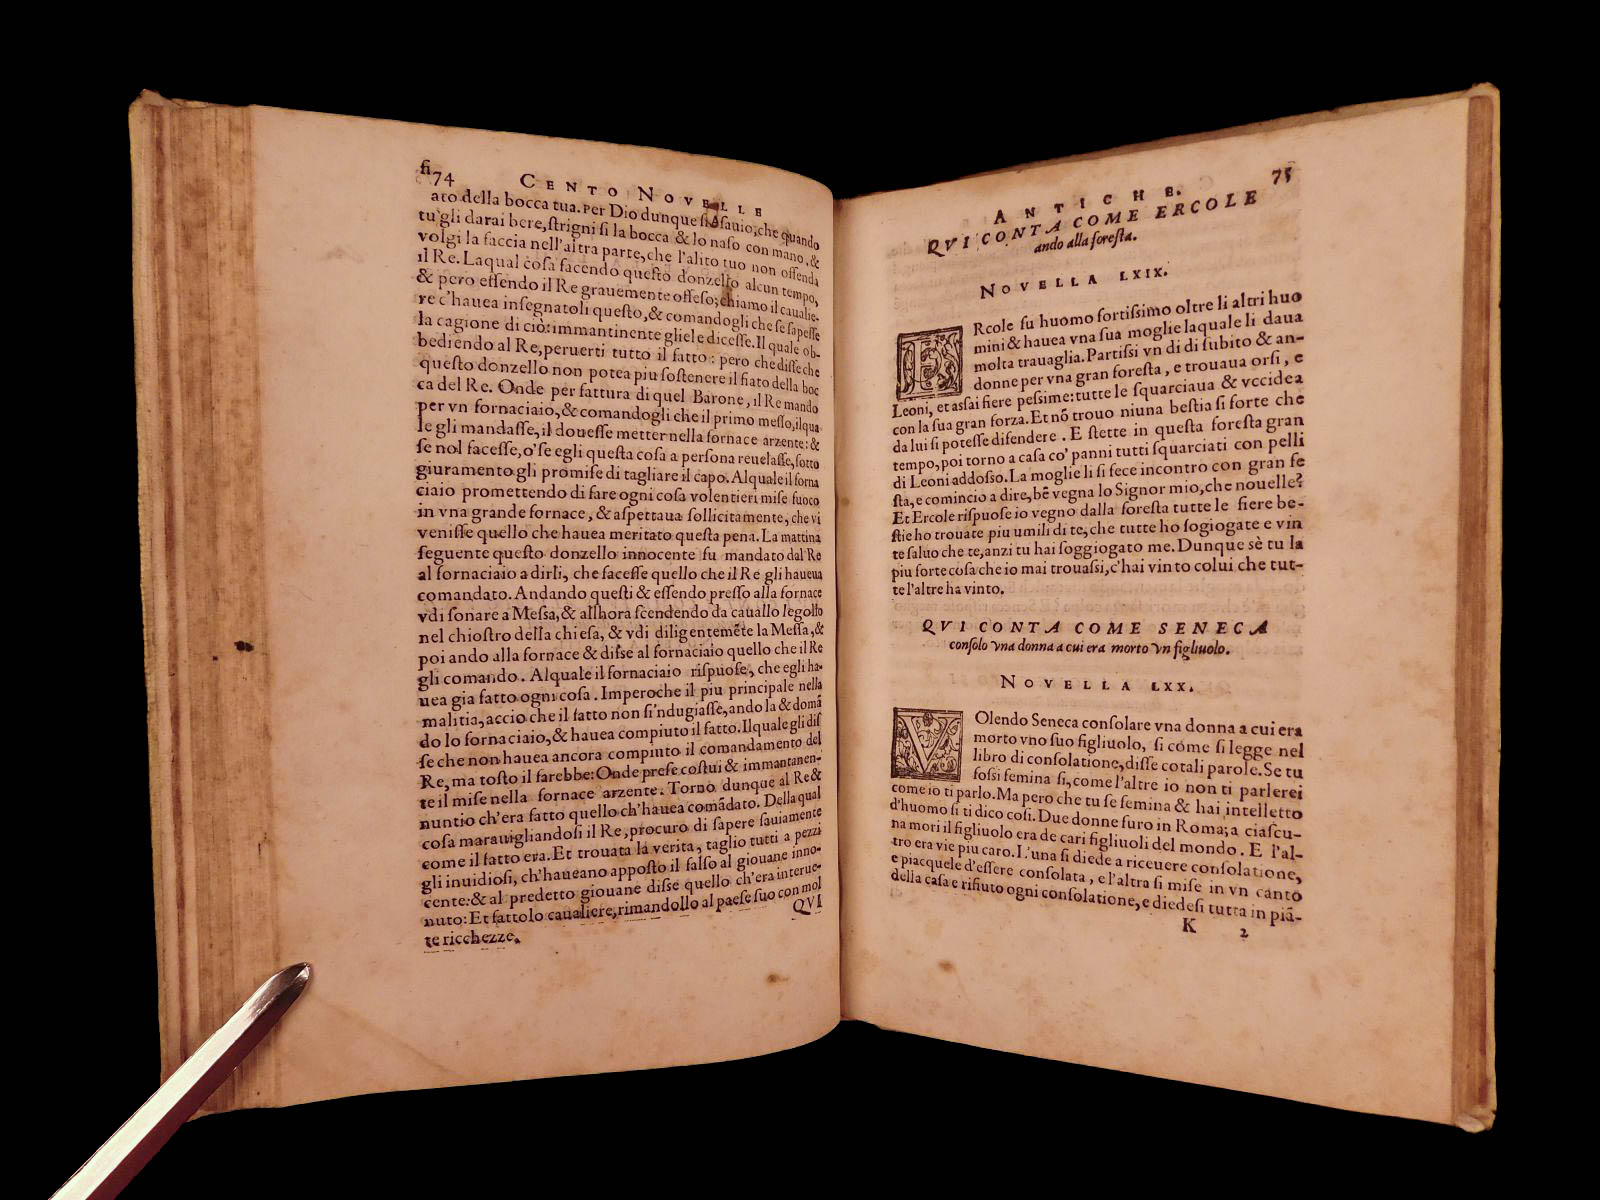 74 CENTO NOVELLE
fiato della bocca tua. Per Dio dunque si sauio, che quando
tu gli darai bere, ſtrigni ſi la bocca & lo naſo con mano, &
volgi la faccia nell'altra parte, che l'alito tuo non offenda
il Re. Laqual coſa facendo queſto donzello alcun tempo,
& pero eſſendo il Re grauemente offeſo; chiamo il caualie-
re c'hauea inſegnatoli queſto, & comandogli che ſe ſapeſſe
la cagione di ciò: immantinente gliele diceſſe. Il quale ob-
bediendo al Re, peruerti tutto il fatto: pero che diſſe che
queſto donzello non potea piu ſoſtenere il fiato della boc
ca del Re. Onde per fattura di quel Barone, il Re mando
per vn fornaciaio, & comandogli che il primo meſſo, ilqua
le gli mandaſſe, il doueſſe metter nella fornace arzente: &
ſe nol faceſſe, o' ſe egli queſta coſa a perſona reuelaſſe, ſotto
giuramento gli promiſe di tagliare il capo. Alquale il forna
ciaio promettendo di fare ogni coſa volentieri miſe fuoco
in vna grande fornace, & aſpettaua ſollicitamente, che vi
veniſſe quello che hauea meritato queſta pena. La mattina
ſeguente queſto donzello innocente fu mandato dal Re
al fornaciaio a dirli, che faceſſe quello che il Re gli haueua
comandato. Andando queſti & eſſendo preſſo alla fornace
vdi ſonare a Meſſa, & allhora ſcendendo da cauallo legollo
nel chioſtro della chieſa, & vdi diligentemẽte la Meſſa, &
poi ando alla fornace & diſſe al fornaciaio quello che il Re
gli comando. Alquale il fornaciaio riſpuoſe, che egli ha-
uea gia fatto ogni coſa. Imperoche il piu principale nella
malitia, accio che il fatto non ſi'ndugiaſſe, ando la & domã
do lo fornaciaio, & hauea compiuto il fatto. Ilquale gli diſ
ſe che non hauea ancora compiuto il comandamento del
Re, ma toſto il farebbe: Onde preſe coſtui & immantanen-
te il miſe nella fornace arzente. Torno dunque al Re &
nuntio ch'era fatto quello ch'hauea comãdato. Della qual
coſa marauigliandoſi il Re, procuro di ſapere ſauiamente
come il fatto era. Et trouata la verita, taglio tutti a pezzi
gli inuidioſi, ch'haueano appoſto il falſo al giouane inno-
cente: & al predetto giouane diſſe quello ch'era interue-
nuto: Et fattolo caualiere, rimandollo al paeſe ſuo con mol
te ricchezze.
QVI
ANTICHE. 75
QVI CONTA COME ERCOLE
ando alla foreſta.
NOVELLA LXIX.
ERcole fu huomo fortiſsimo oltre li altri huo
mini & hauea vna ſua moglie laquale li daua
molta trauaglia. Partiſsi vn di di ſubito & an-
donne per vna gran foreſta, e trouaua orſi, e
Leoni, et aſſai fiere peſsime: tutte le ſquarciaua & vccidea
con la ſua gran forza. Et nõ trouo niuna beſtia ſi forte che
da lui ſi poteſſe difendere. E ſtette in queſta foreſta gran
tempo, poi torno a caſa co' panni tutti ſquarciati con pelli
di Leoni addoſſo. La moglie li ſi fece incontro con gran fe
ſta, e comincio a dire, bẽ vegna lo Signor mio, che nouelle?
Et Ercole riſpuoſe io vegno dalla foreſta tutte le fiere be-
ſtie ho trouate piu umili di te, che tutte ho ſogiogate e vin
te ſaluo che te, anzi tu hai ſoggiogato me. Dunque sè tu la
piu forte coſa che io mai trouaſsi, c'hai vinto colui che tut-
te l'altre ha vinto.
QVI CONTA COME SENECA
conſolo vna donna a cui era morto vn figliuolo.
NOVELLA LXX.
VOlendo Seneca conſolare vna donna a cui era
morto vno ſuo figliuolo, ſi come ſi legge nel
libro di conſolatione, diſſe cotali parole. Se tu
foſsi femina ſi, come l'altre io non ti parlerei
come io ti parlo. Ma pero che tu ſe femina & hai intelletto
d'huomo ſi ti dico coſi. Due donne furo in Roma; a ciaſcu-
na mori il figliuolo era de cari figliuoli del mondo. E l'al-
tro era vie piu caro. L'una ſi diede a riceuere conſolatione,
e piacquele d'eſſere conſolata, e l'altra ſi miſe in vn canto
della caſa e rifiuto ogni conſolatione, e diedeſi tutta in piã-
K 2